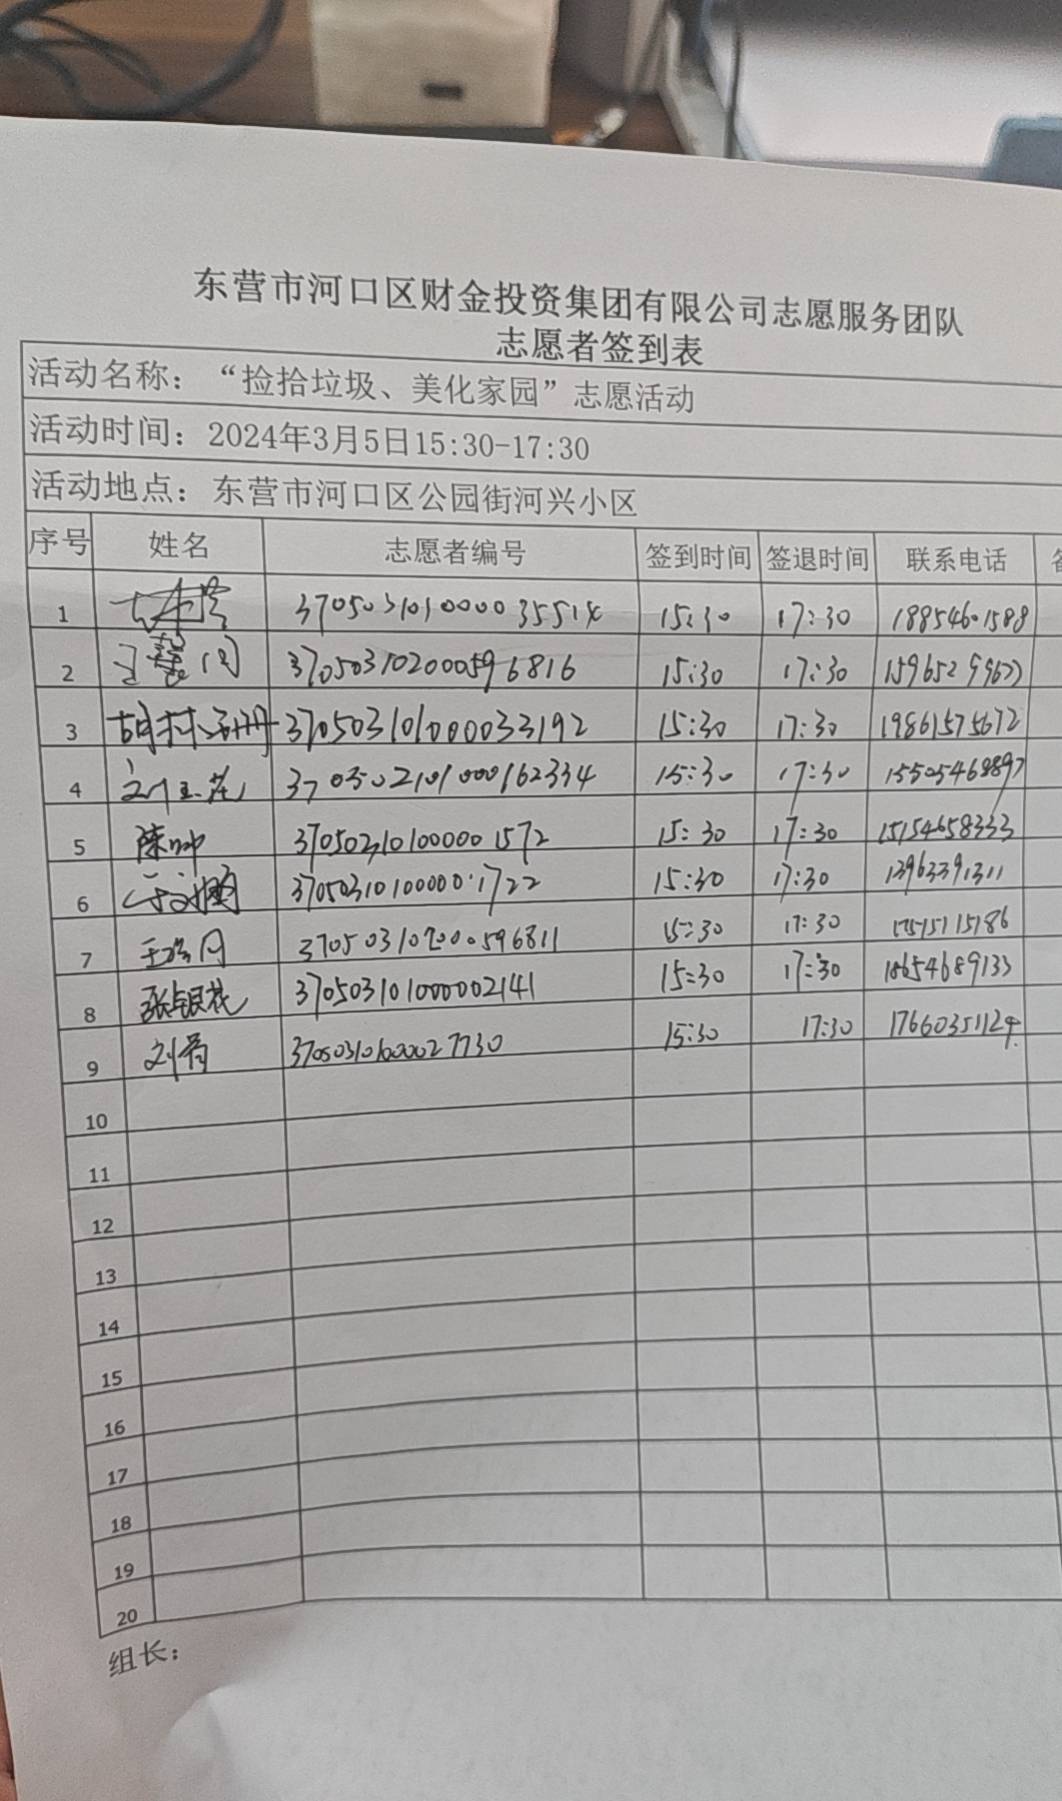 东营市河口区财金投资集团有限公司志愿服务团队
志愿者签到表
活动名称：“捡拾垃圾、美化家园”志愿活动
活动时间：2024年3月5日15:30-17:30
活动地点：东营市河口区公园街河兴小区
序号 姓名 志愿者编号 签到时间 签退时间 联系电话
1 15:30 17:30 18854601588
2 370503102000596816 15:30 17:30
3 370503101000033192 15:30 17:30 19861575672
4 370502101000162334 15:30 17:30
5 陈帅 370502101000001572 15:30 17:30 15154658333
6 370503101000001722 15:30 17:30 13963391311
7 370503102000596811 15:30 17:30
8 张银花 370503101000002141 15:30 17:30 18654689133
9 15:30 17:30 17660351124
10
11
12
13
14
15
16
17
18
19
20
组长：